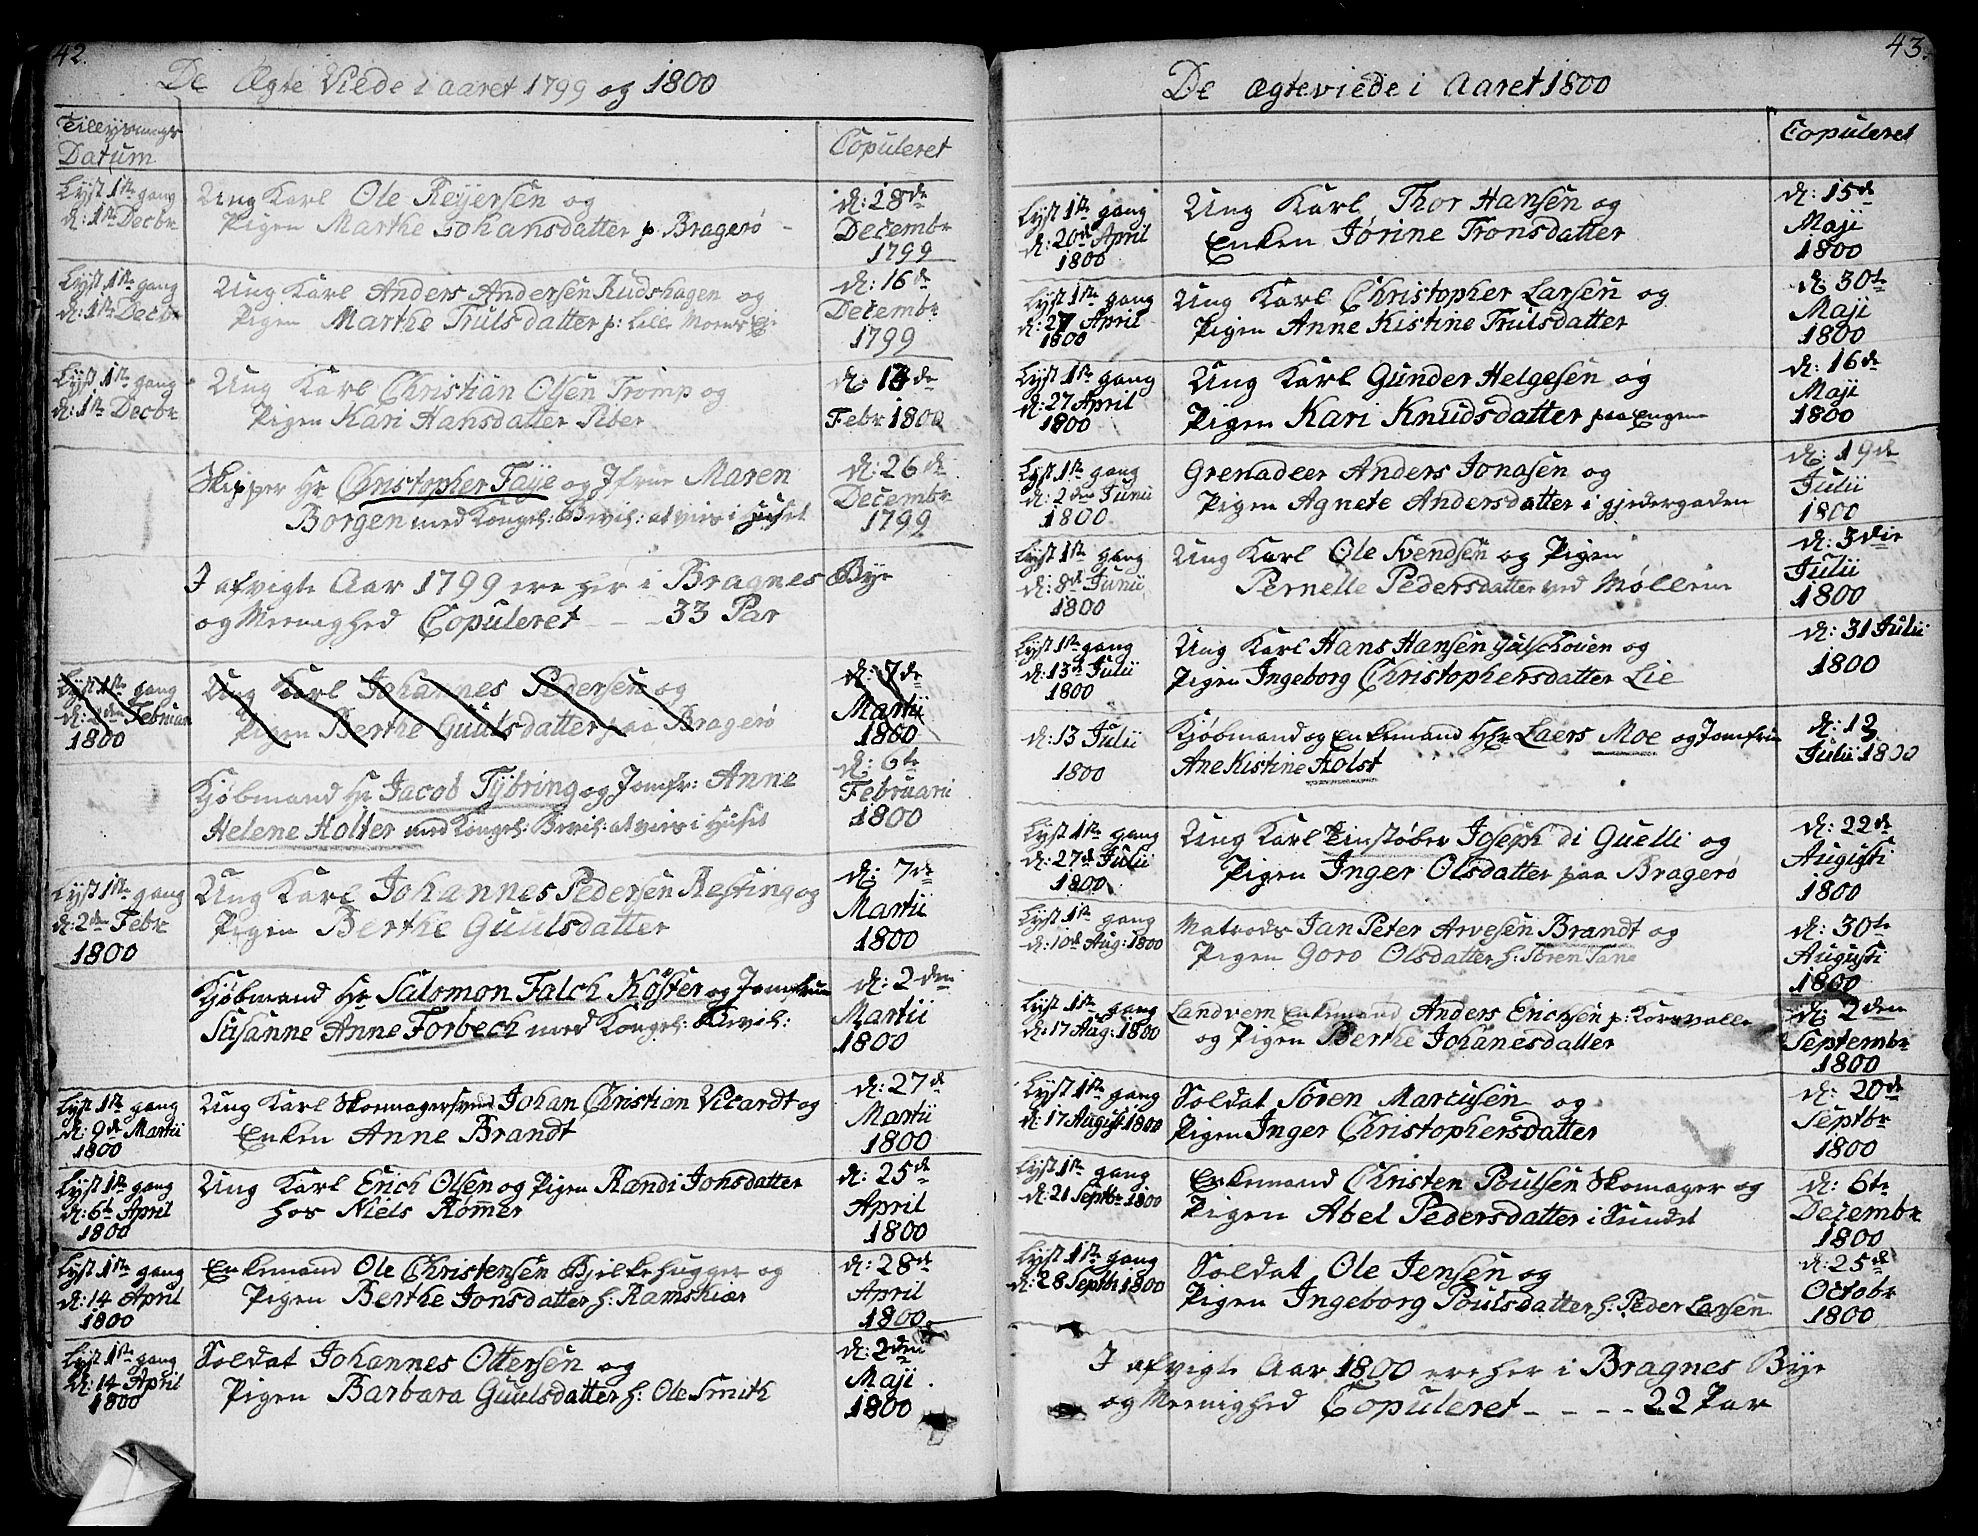 42.
De Ægte Viede i aaret 1799 og 1800
Tillysnings Datum
Copuleret
Lyst 1ste gang
d: 1ste Decbr
Ung Karl Ole Reyersen og
Pigen Marthe Johansdatter p. Bragerø
d: 28de
Decembr
1799
Lyst 1ste gang
d: 1ste Decbr
Ung Karl Anders Andersen Rudshagen og
Pigen Marthe Trulsdatter p: Lille Moens Ej:
d: 16de
Decembr
1799
Lyst 1ste gang
d: 1ste Decbr
Ung Karl Christian Olsen Tromp og
Pigen Kari Hansdatter Piber
d: 13de
Febr 1800
Skipper Hr Christopher Faye og Jfrue Maren
Borgen med Kongel: Bevil: at vies i Huset
d: 26de
Decembr
1799
I afvigte Aar 1799 ere her i Bragnes Bye
og Meenighed Copuleret - - 33 Par
Lyst 1ste gang
d: 2den Februar
1800
Ung Karl Johannes Pedersen og
Pigen Berthe Guulsdatter paa Bragerø
d: 7de
Martii
1800
Kjøbmand Hr Jacob Tybring og Jomfr: Anne
Helene Holter med Kongel: Bevil: at vies i Huset
d: 6te
Februarii
1800
Lyst 1ste gang
d: 2den Febr
1800
Ung Karl Johannes Pedersen Røhsing og
Pigen Berthe Guulsdatter
d: 7de
Martii
1800
Kjøbmand Hr Salomon Falch Köster og Jomfrue
Susanne Anne Forbech med Kongel: Bevil:
d: 2den
Martii
1800
Lyst 1ste gang
d: 9de Martii
1800
Ung Karl Skomagersvend Johan Christian Vicardt og
Enken Anne Brandt
d: 27de
Martii
1800
Lyst 1ste gang
d: 6te April
1800
Ung Karl Erich Olsen og Pigen Randi Jonsdatter
hos Niels Rømer
d: 25de
April
1800
Lyst 1ste gang
d: 14 April
1800
Enkemand Ole Christensen Bielkehugger og
Pigen Berthe Jonsdatter h: Ramskiær
d: 28de
April
1800
Lyst 1ste gang
d: 14 April
1800
Soldat Johannes Ottersen og
Pigen Barbara Guulsdatter h: Ole Smith
d: 2den
Maji
1800
43.
De Ægteviede i Aaret 1800
Copuleret
Lyst 1ste gang
d: 20de April
1800
Ung Karl Thor Hansen og
Enken Jörine Tronsdatter
d: 15de
Maji
1800
Lyst 1ste gang
d: 27 April
1800
Ung Karl Christopher Larsen og
Pigen Anne Kistine Trulsdatter
d: 30te
Maji
1800
Lyst 1ste gang
d: 27 April
1800
Ung Karl Gunder Helgesen og
Pigen Kari Knudsdatter paa Engene
d: 16de
Maji
1800
Lyst 1ste gang
d: 2den Junii
1800
Grenadeer Anders Jonasen og
Pigen Agnete Andersdatter i gjedergaden
d: 19de
Julii
1800
Lyst 1ste gang
d: 8de Junii
1800
Ung Karl Ole Svendsen og Pigen
Pernelle Pedersdatter ved Møllerne
d: 3die
Julii
1800
Lyst 1ste gang
d: 13de Julii
1800
Ung Karl Hans Hansen og
Pigen Ingeborg Christophersdatter Lie
d: 31 Julii
1800
d: 13 Julii
1800
Kjøbmand og Enkemand Hr Laers Moe og Jomfrue
Ane Kistine Holst
d: 13
Julii 1800
Lyst 1ste gang
d: 27de Julii
1800
Ung Karl Tinstøber Joseph di Guelli og
Pigen Inger Olsdatter paa Bragerø
d: 22de
Augusti
1800
Lyst 1ste gang
d: 10de Aug: 1800
Matrods Jan Peter Arvesen Brandt og
Pigen Goro Olsdatter h: Sören Tane
d: 30te
Augusti
1800
Lyst 1ste gang
d: 17 Aug: 1800
Landvern Enkemand Anders Ericksen p: Korsvolle
og Pigen Berthe Johanesdatter
d: 2den
Septembr
1800
Lyst 1ste gang
d: 17 August 1800
Soldat Sören Marcusen og
Pigen Inger Christophersdatter
d: 20de
Septbr
1800
Lyst 1ste gang
d: 21 Septbr 1800
Enkemand Christen Poulsen Skomager og
Pigen Abel Pedersdatter i Sundet
d: 6te
Decembr
1800
Lyst 1ste gang
d: 28 Septbr 1800
Soldat Ole Jensen og
Pigen Ingeborg Poulsdatter h: Peder Larsen
d: 25de
Octobr
1800
I afvigte Aar 1800 ere her i Bragnes Bye
og Meenighed Copuleret - - - - 22 Par